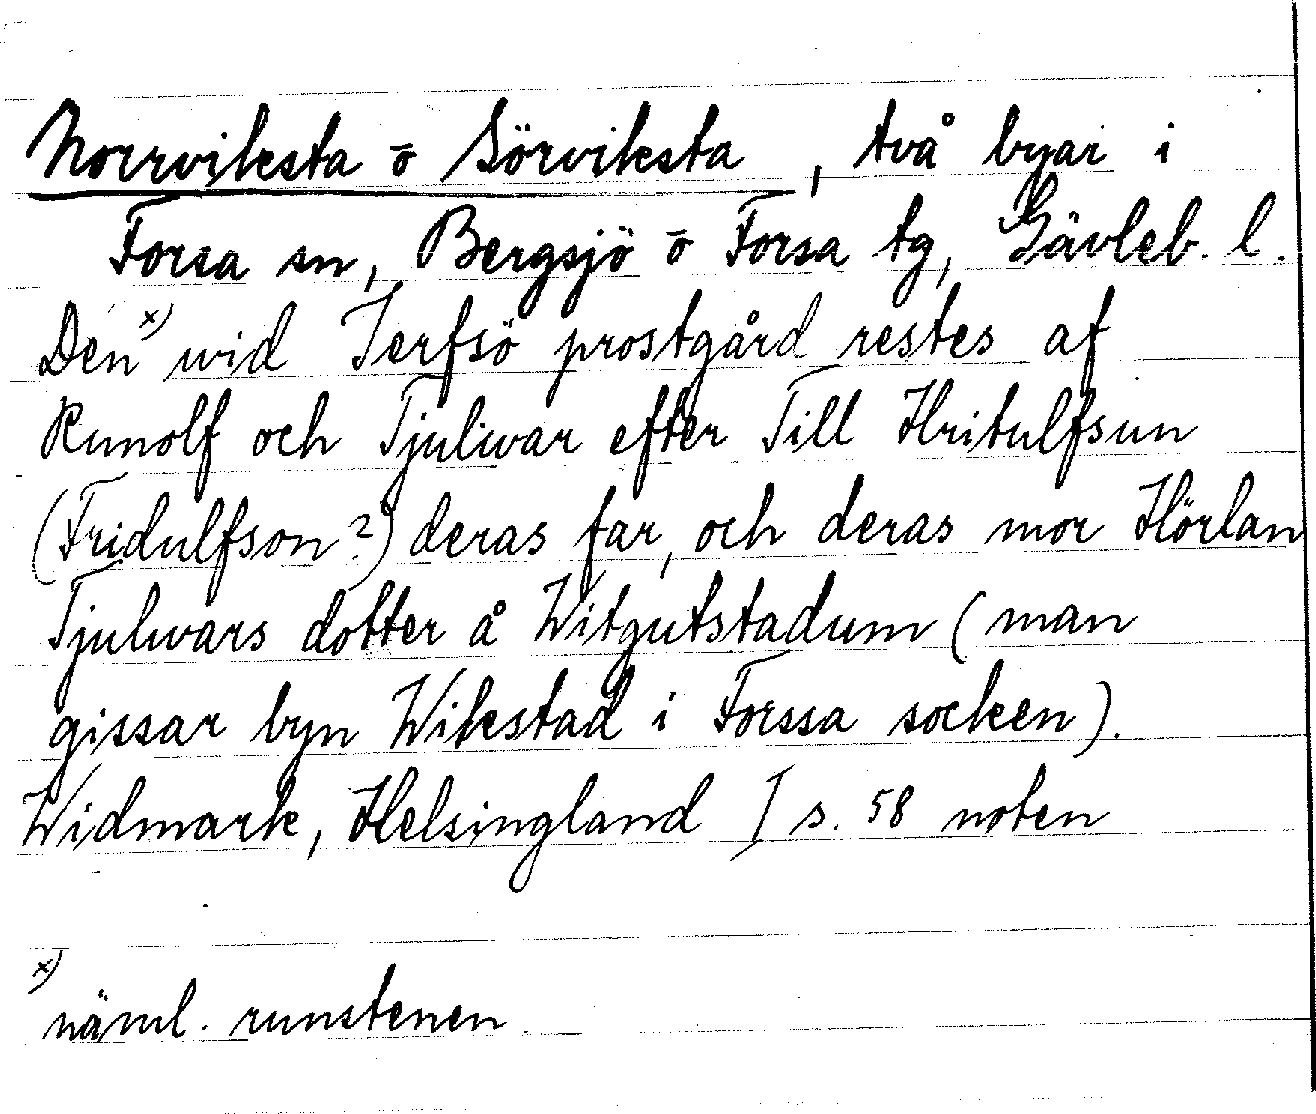 Norrviksta o Sörviksta, två byar i
Forsa sn, Bergsjö o Forsa tg, Gävleb. l.
Den x) wid Jerfsö prostgård restes af
Runolf och Tjuliwar efter Till Hritulfsun
(Fridulfson?) deras far, och deras mor Hörlan
Tjulwars dotter å Witgutstadum (man
gissar byn Wikstad i Forssa socken).
Widmark, Helsingland I s. 58 noten
x)
näml. runstenen